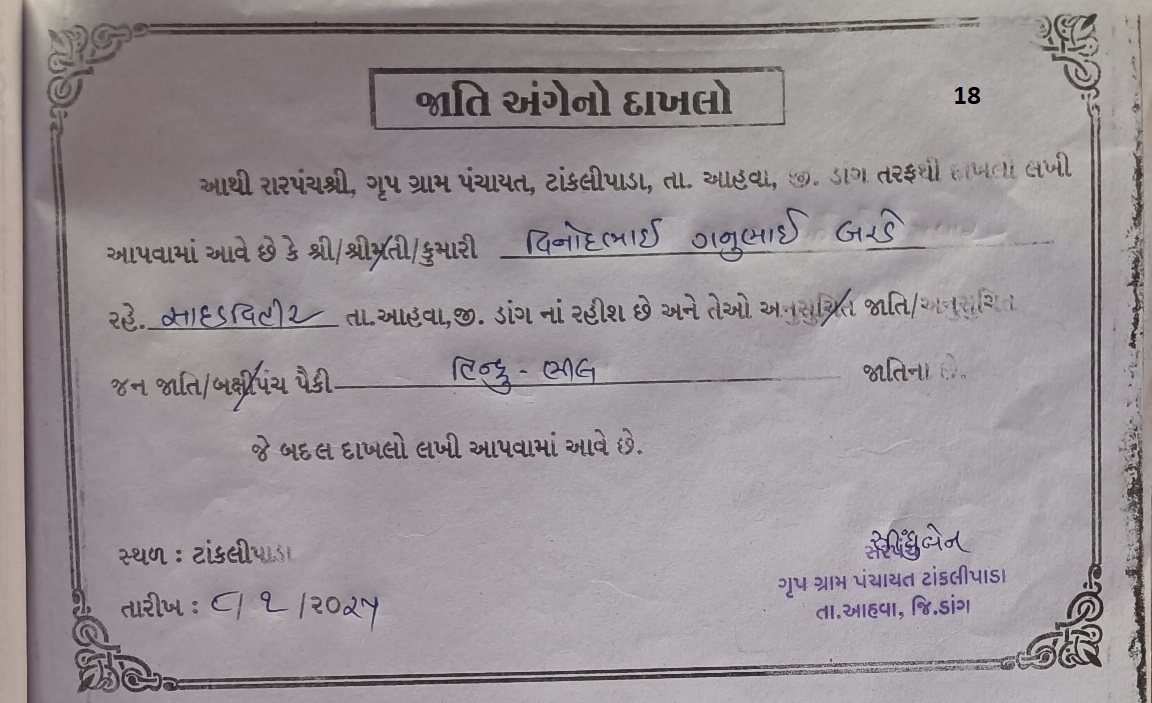 જાતિ અંગેનો દાખલો
18
આથી સરપંચશ્રી, ગૃપ ગ્રામ પંચાયત, ટાંકલીપાડા, તા. આહવા, જી. ડાંગ તરફથી દાખલો લખી
આપવામાં આવે છે કે શ્રી/શ્રીમતી/કુમારી વિનોદભાઈ ગનુભાઈ બરડે
રહે. સાદડવિહીર તા.આહવા,જી. ડાંગ નાં રહીશ છે અને તેઓ અનુસુચિત જાતિ/અનુસુચિત
જન જાતિ/બક્ષીપંચ પૈકી હિન્દુ - ભીલ જાતિના છે.
જે બદલ દાખલો લખી આપવામાં આવે છે.
સ્થળ : ટાંકલીપાડા
તારીખ : ૮/૧/૨૦૨૫
સરપંચ
ગૃપ ગ્રામ પંચાયત ટાંકલીપાડા
તા.આહવા, જિ.ડાંગ